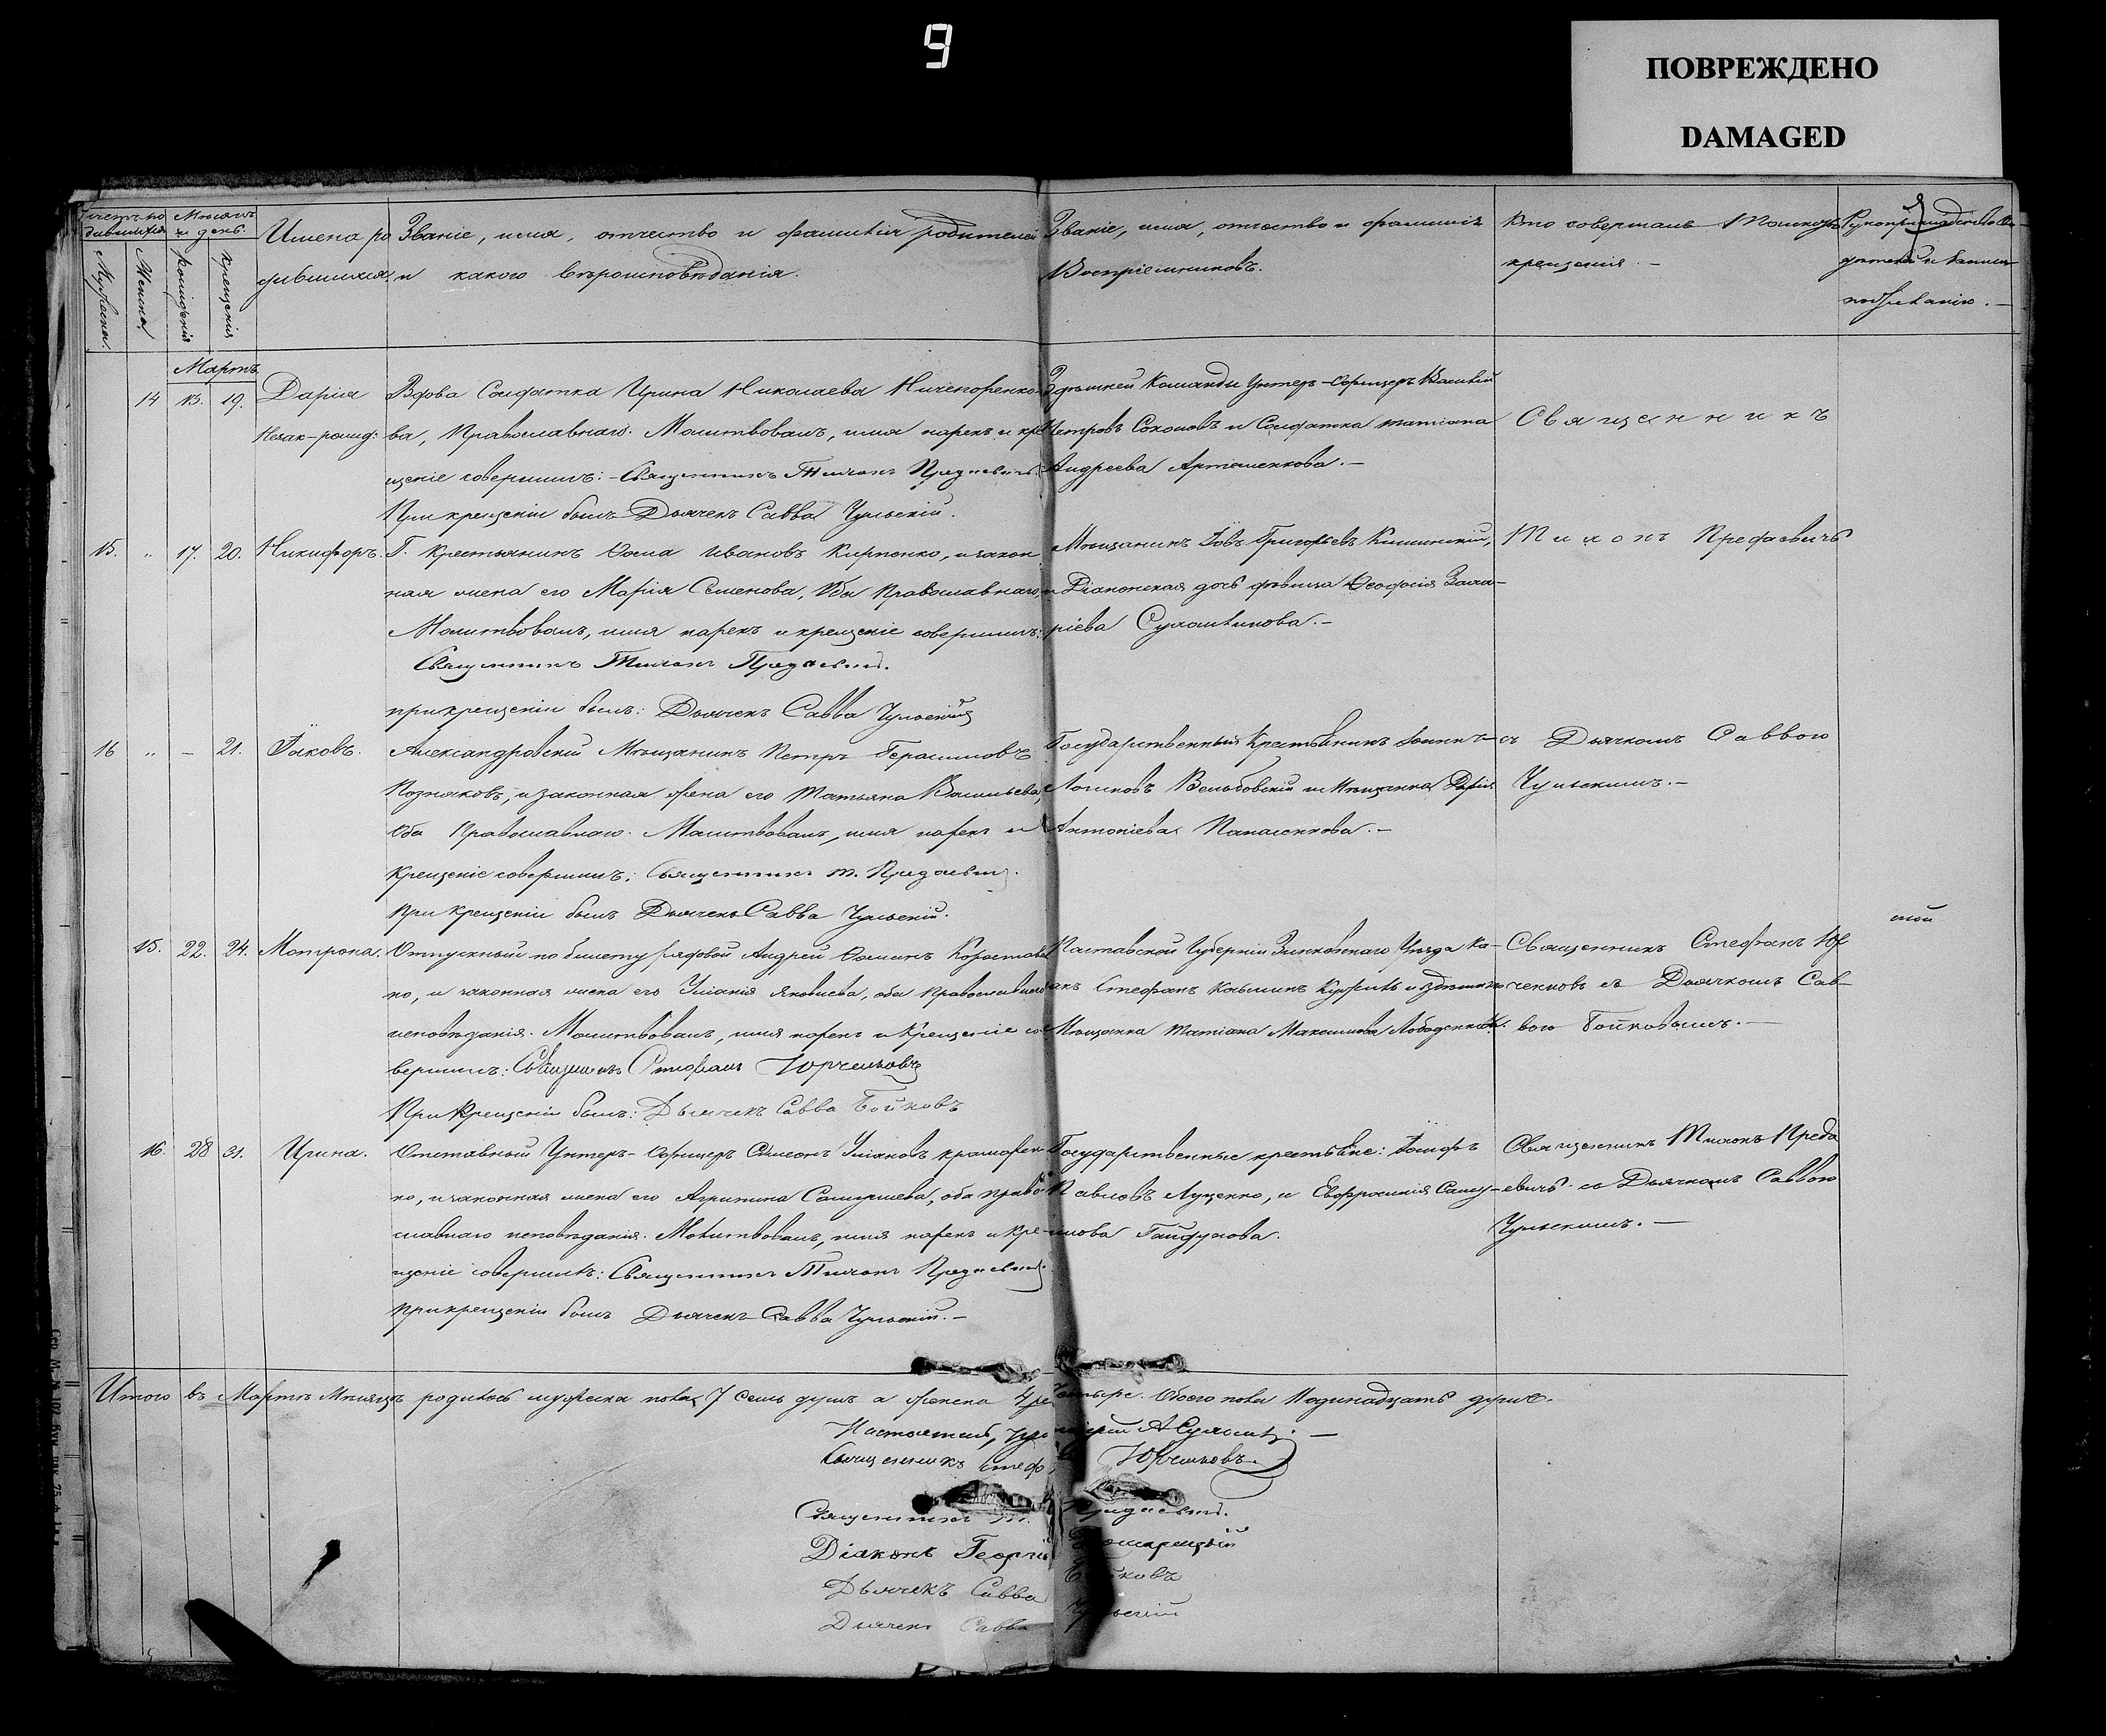 9
ПОВРЕЖДЕНО
DAMAGED
Счетъ ро
дившихся
Мѣсяцъ
и день.
Мужеска.
Женска
рожденія
крещенія
Имена ро
дившихся,
Званіе, имя, отчество и фамилія родителей
и какого вѣроисповѣданія.
Званіе, имя, отчество и фамилія
Воспріемниковъ.
Кто совершалъ Таинство
крещенія.–
Рукоприкладство
подписанію.–
Мартъ.
14 13. 19. Дарія
Незак-рожд:
Вдова Солдатка Ирина Николаева Ничепоренко
ва, Православнаго. Молитвовалъ, имя нарекъ и кре
щеніе совершилъ: Священникъ Тихонъ Предаевичъ.
При крещеніи былъ Дьячекъ Савва Чульскій.
Здѣшней Команды Унтеръ-Офицеръ Василій
Петровъ Соколовъ и Солдатка Татіана
Андреева Артеменкова.–
Священникъ
15. " 17. 20. Никифоръ.
Г. Крестьянинъ Ѳома Ивановъ Кирпенко, и закон
ная жена его Марія Семенова, Оба Православнаго,
Молитвовалъ, имя нарекъ и крещеніе совершилъ:
Священникъ Тихонъ Предаевичъ.
при крещеніи былъ: Дьячекъ Савва Чульскій
Мѣщанинъ Іовъ Григорьевъ
и Діаконская дочь дѣвица Ѳеодосія Заха–
ріева
Тихонъ Предаевичъ
16 " – 21. Іаковъ.
Александровскій Мѣщанинъ Петръ Герасимовъ
Позняковъ, и законная жена его Татьяна Васильева,
Оба Православнаго. Молитвовалъ, имя нарекъ и
Крещеніе совершилъ: Священникъ Т. Предаевичъ.
При крещеніи былъ Дьячекъ Савва Чульскій.
Государственный Крестьянинъ
Логиновъ Вельбовскій и Мѣщанка Дарія
Антоніева Панасенкова.–
съ Дьячкомъ Саввою
Чульскимъ.–
15. 22. 24. Матрона.
Отпускный по билету рядовой Андрей Ѳоминъ
но, и законная жена его Уліанія Яковлева, оба Православнаго
исповѣданія. Молитвовалъ, имя нарекъ и Крещеніе со
вершилъ: Священникъ Стефанъ Юрченковъ
При Крещеніи былъ: Дьячекъ Савва Бойковъ
Полтавской Губерніи Зинковскаго Уѣзда Ка–
закъ Стефанъ Козьминъ и здѣшняя
Мѣщанка Татіана Максимова Лободенкова.
Священникъ Стефанъ Юр
ченковъ съ Дьячкомъ Сав–
вою Бойковымъ.–
16. 28 31. Ирина.
Отставный Унтеръ-Офицеръ Симеонъ Уліановъ
но, и законная жена его Агрипина Самуилева, оба право
славнаго исповѣданія. Молитвовалъ, имя нарекъ и кре–
щеніе совершилъ: Священникъ Тихонъ Предаевичъ.
При крещеніи былъ Дьячекъ Савва Чульскій.–
Государственные крестьяне: Іосифъ
Павловъ Луценко, и Евфросинія Саму–
илова Гайдукова.
Священникъ Тихонъ Преда
евичъ съ Дьячкомъ Саввою
Чульскимъ.–
Итого въ Мартѣ Мѣсяцѣ родилось мужеска пола 7 семь душъ а женска 4 четыре. Обоего пола 11 одинадцать душъ.
Настоятель,
Священникъ Стеф Юрченковъ.
Священникъ Т. Предаевичъ.
Діаконъ Георгій
Дьячекъ Савва Бойковъ
Дьячекъ Савва Чульскій